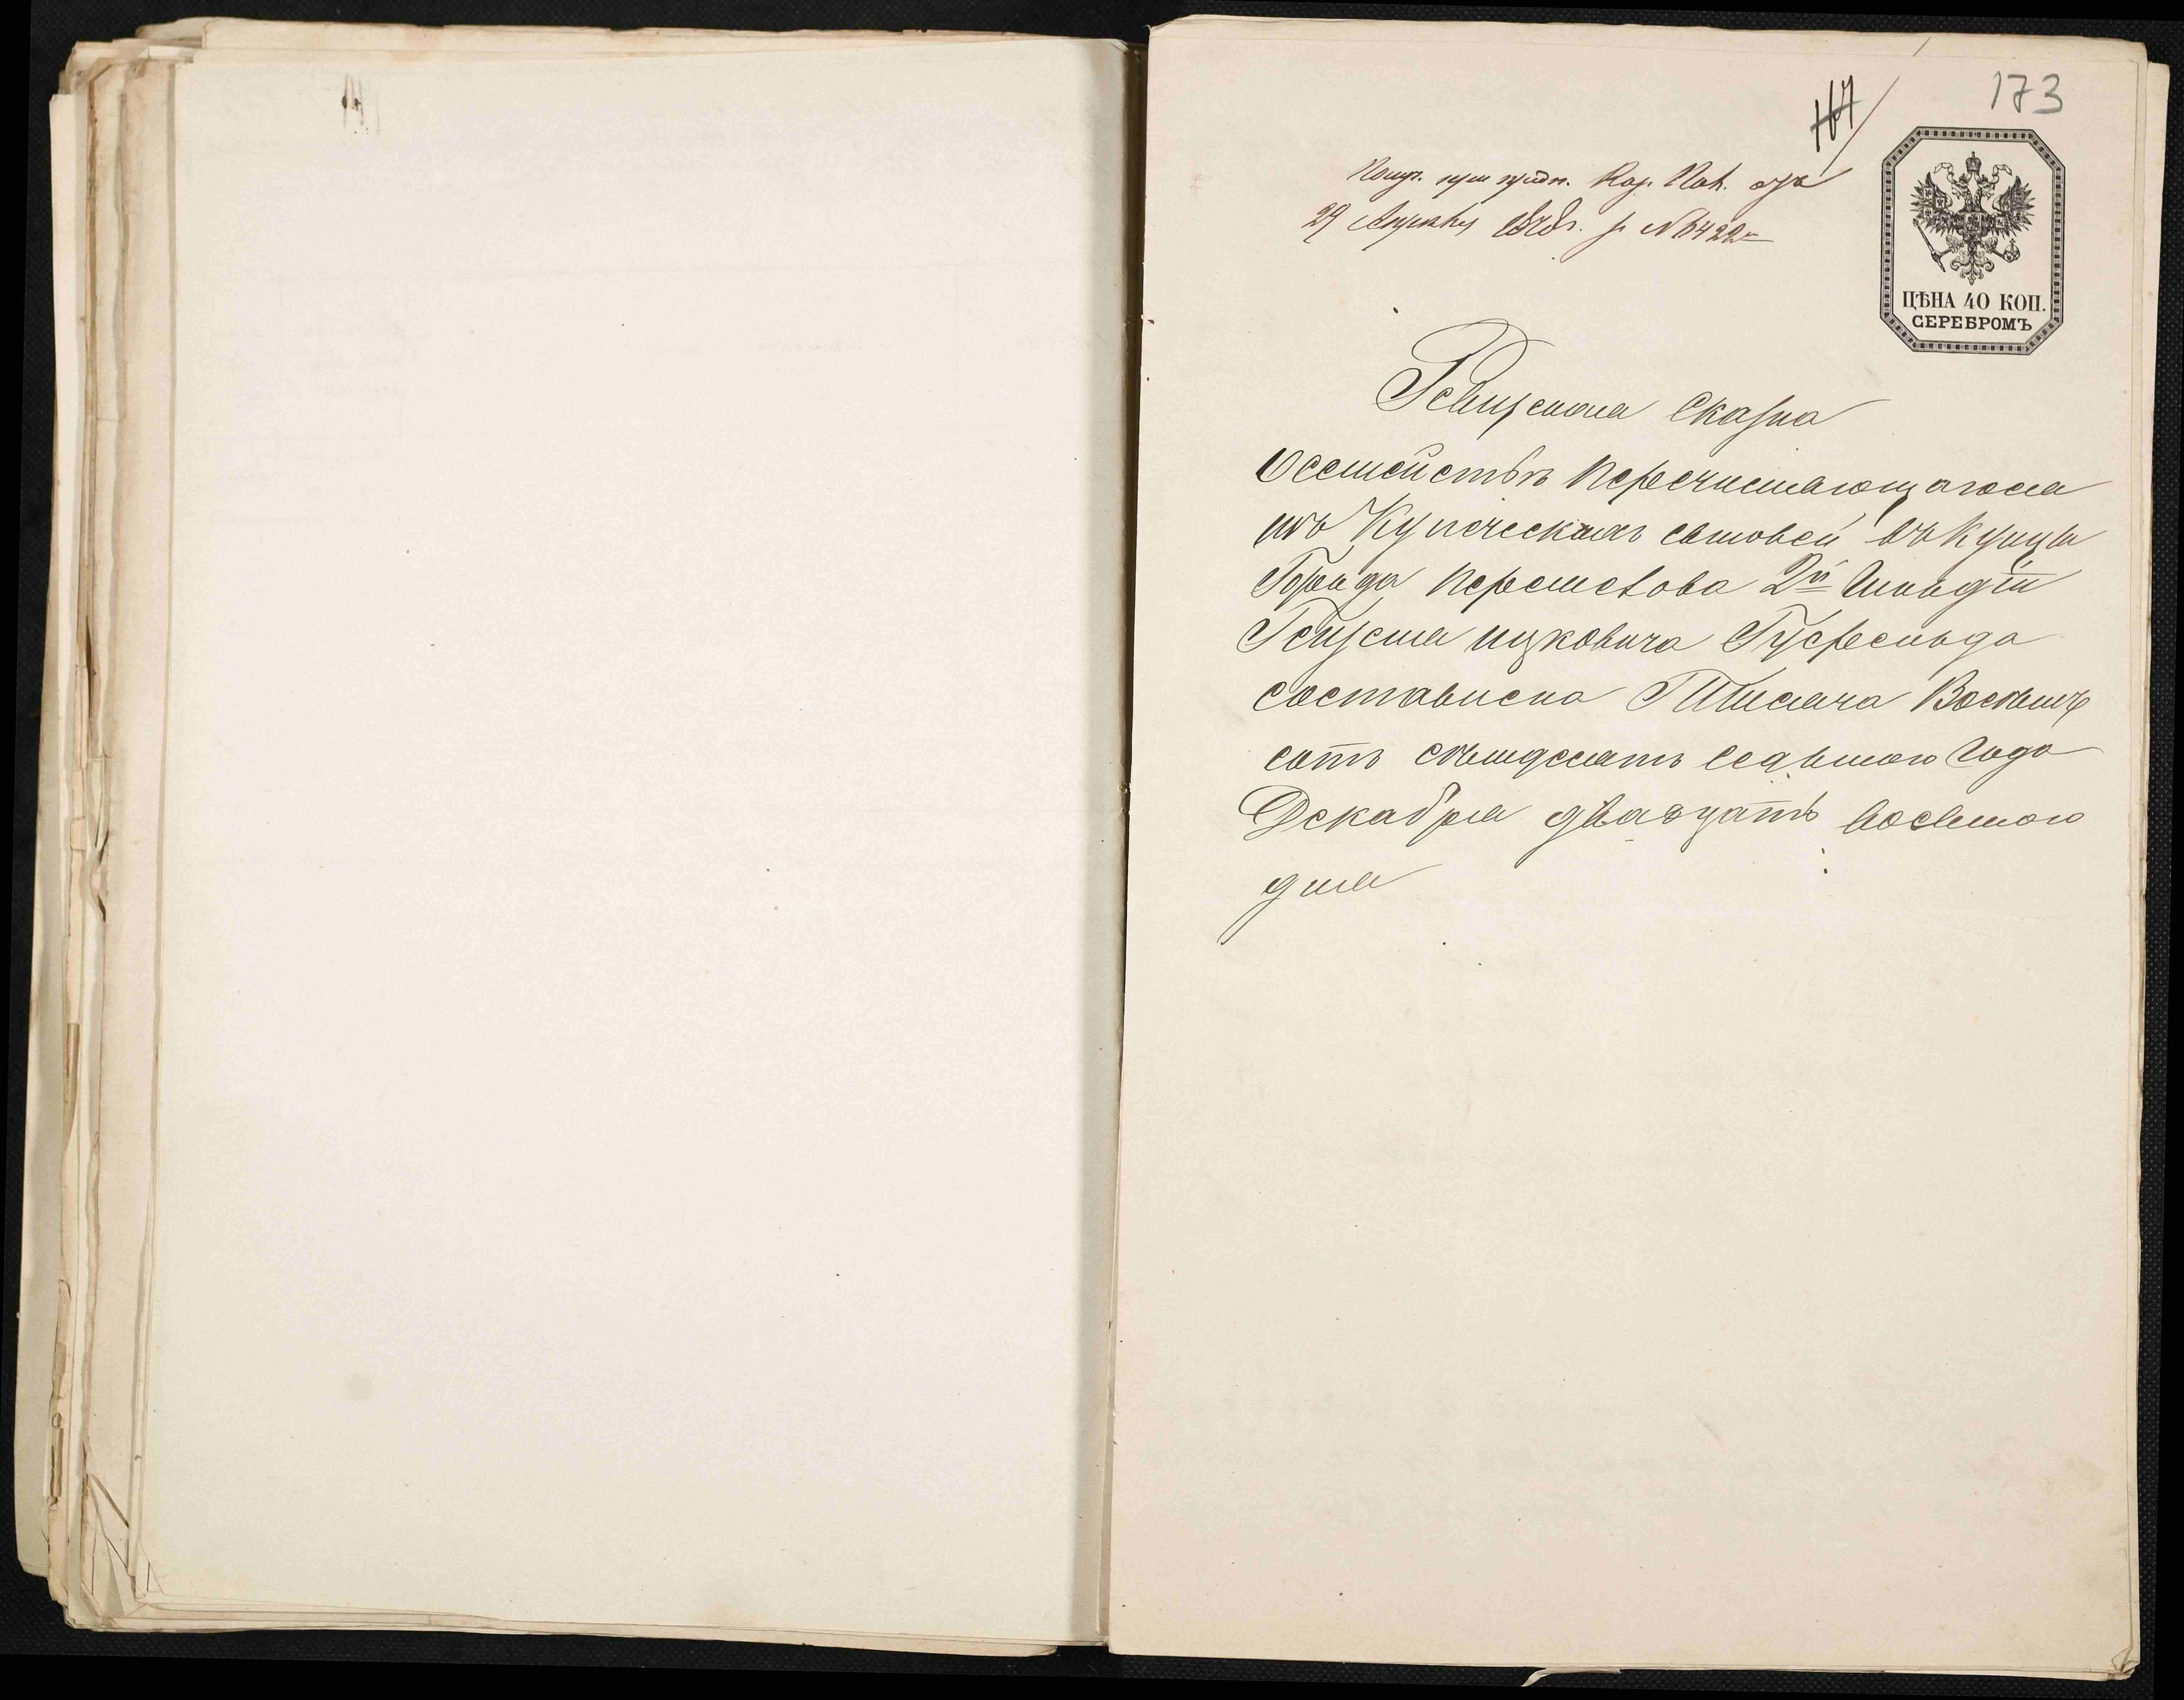 173
167
Получ. при предп. Каз. Пал. отъ
29 Апрѣля 1878 г. за № 6422
ЦѢНА 40 КОП.
СЕРЕБРОМЪ
Ревизская Сказка
О семействѣ перечисляющагося
изъ Купеческихъ сыновей въ Купцы
Города 2й Гильдіи
Ицковича
составлена Тысяча Восемь
сотъ семьдесятъ седьмого Года
Декабря двадцать восьмого
дня